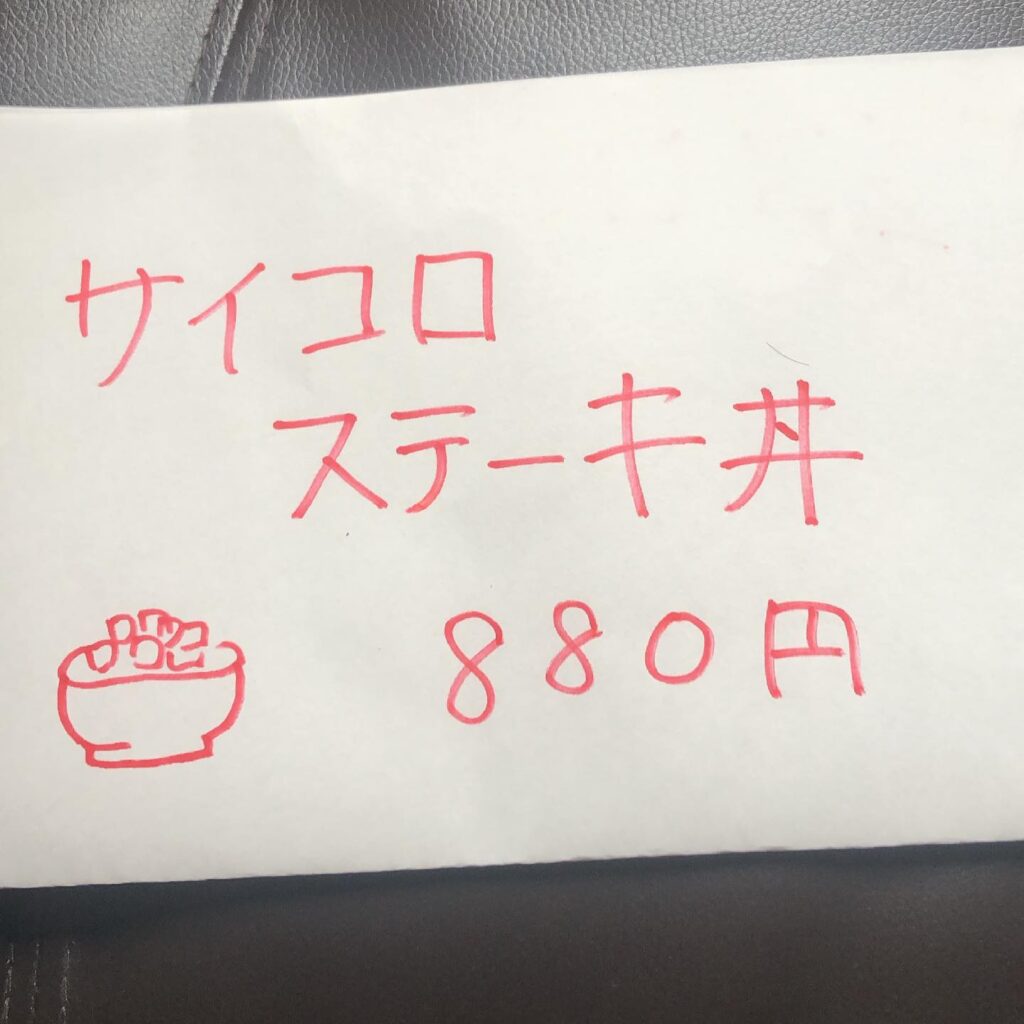 サイコロ
ステーキ丼
880円